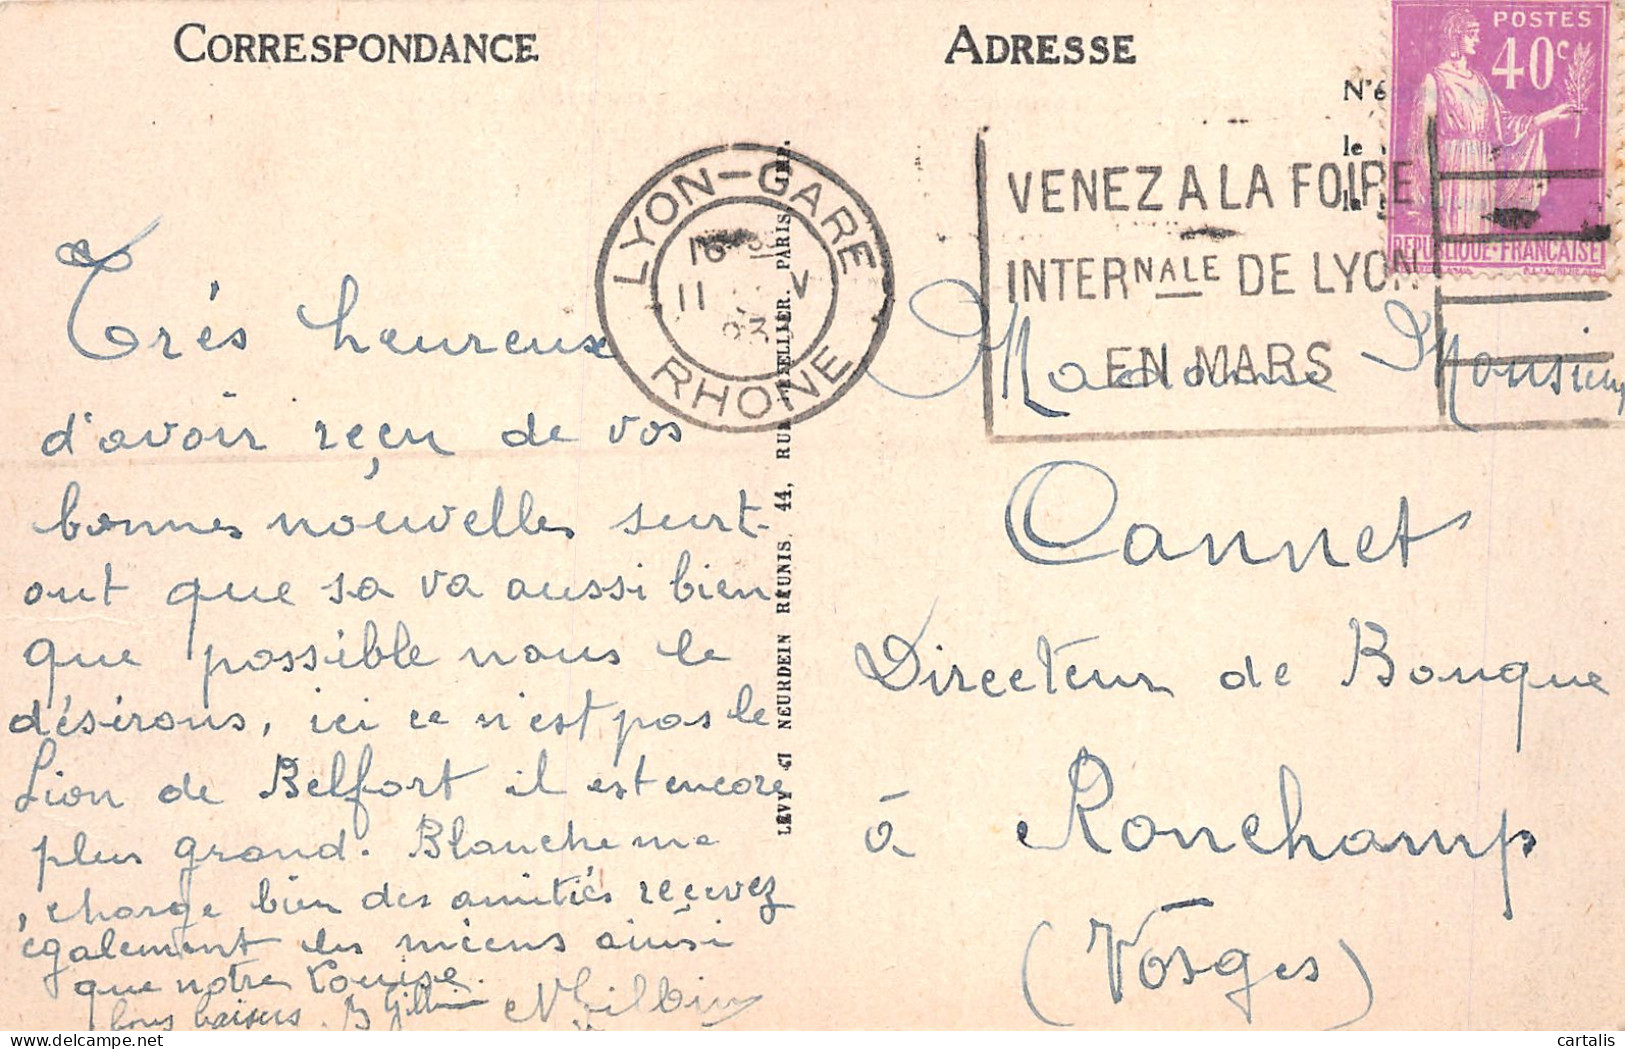 CORRESPONDANCE
Trés heureuse
d'avoir reçu de vos
bonnes nouvelles surt-
out que sa va aussi bien
que possible nous le
désirons, ici ce n'est pas le
Lion de Belfort il est encore
plus grand. Blanche me
charge bien des amitiés reçevez
également les miens ainsi
que notre Louise.
bons baisers. B
LYON-GARE
RHONE
11 V
LEVY ET NEURDEIN RÉUNIS, 44, RUE LETELLIER. PARIS. IMP.
ADRESSE
N°6
le
la
VENEZ A LA FOIRE
INTERNALE DE LYON
EN MARS
POSTES
40c
REPUBLIQUE-FRANÇAISE
Madame Monsieur
Cannet
Directeur de Banque
à Ronchamp
(Vosges)
© cartalis
www.delcampe.net